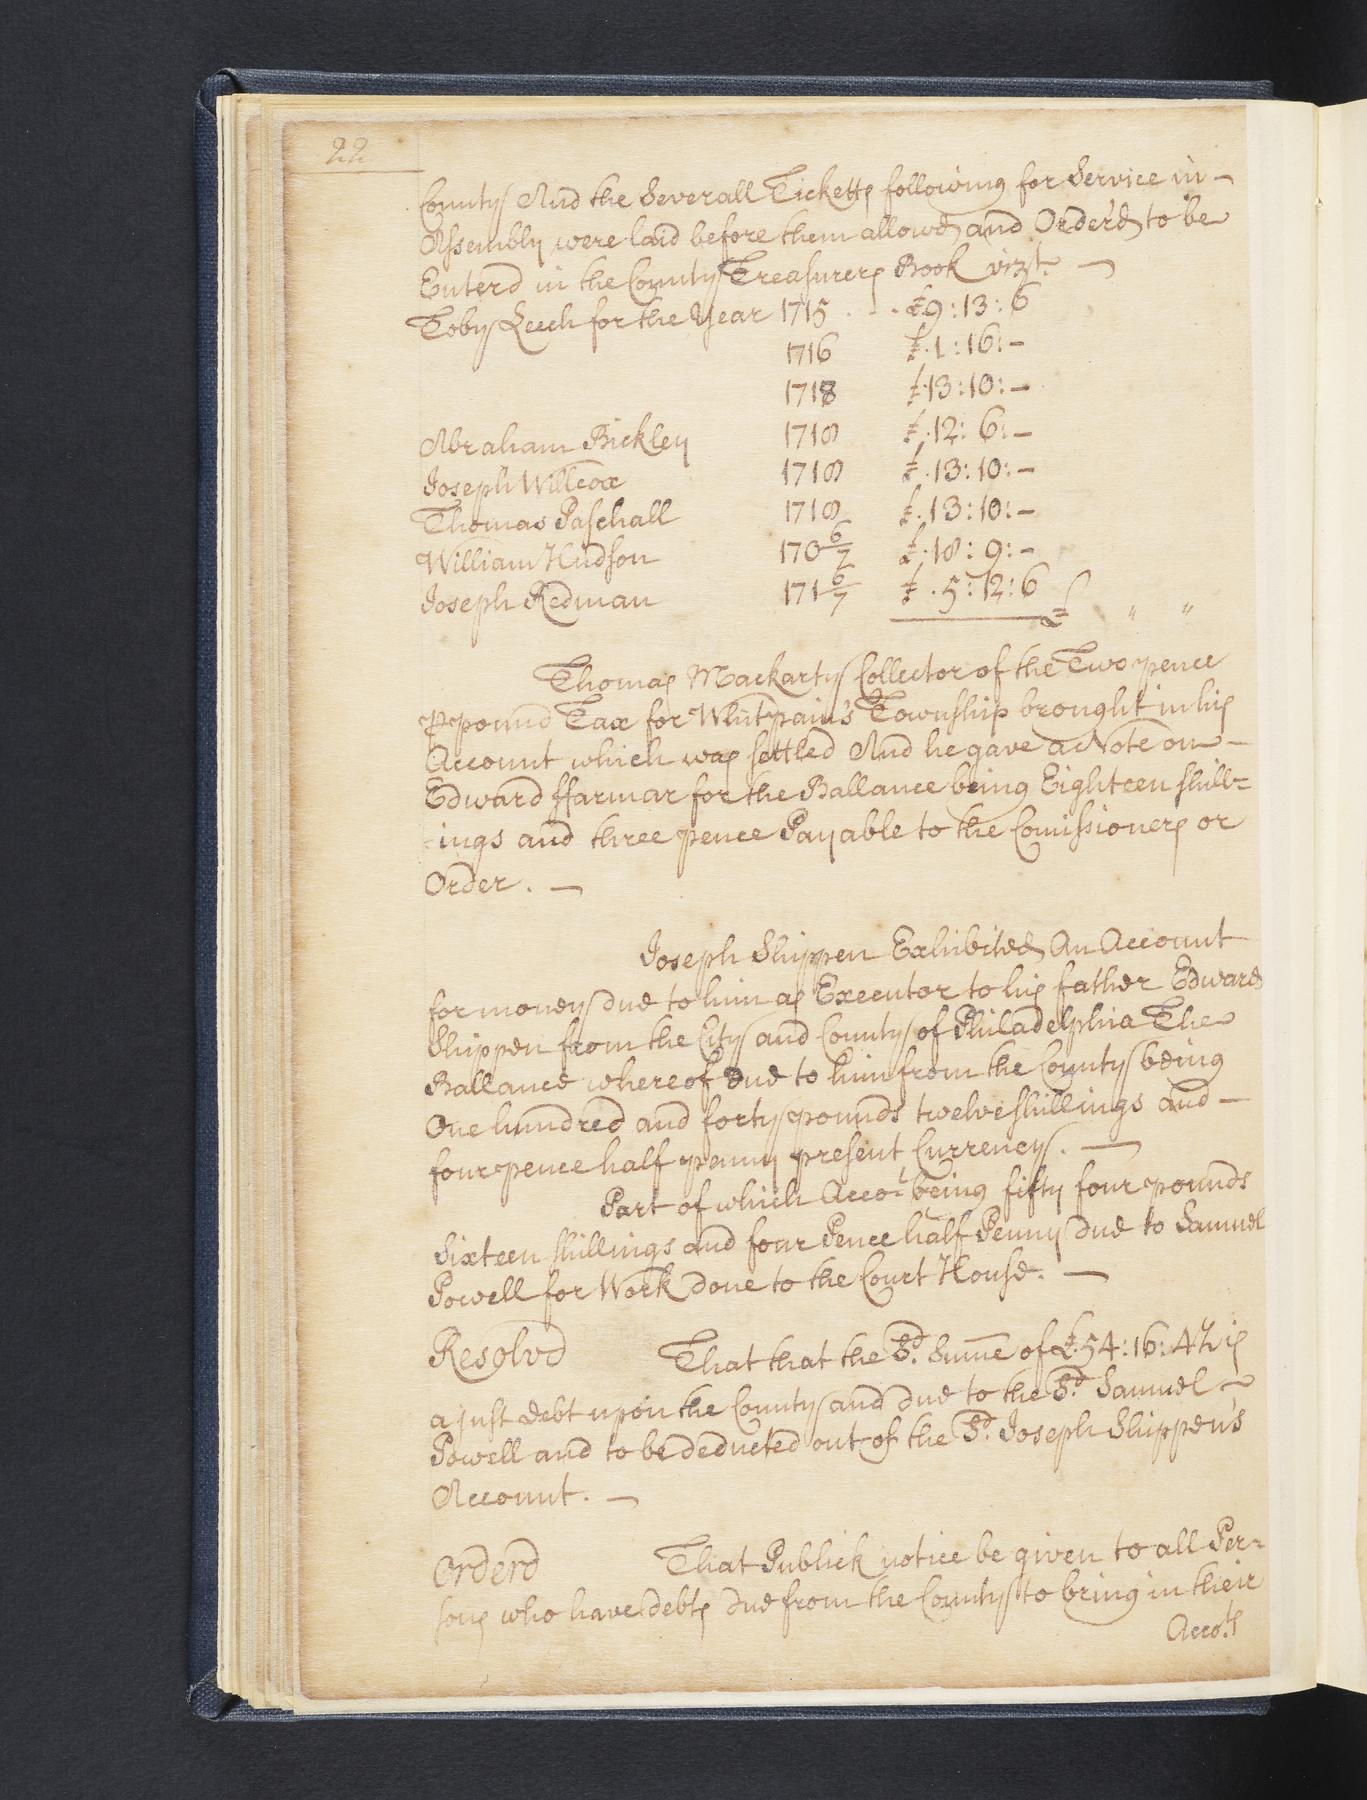 22
County And the Severall Ticketts following for Service in -
Assembly were laid before them allowd and Orderd to be
Enterd in the County Treasurers Book vizt. —
Toby Leech for the Year 1715 . - . £9 : 13 : 6
1716 £. 1 : 16: -
1718 £ 13 : 10: -
Abraham Bickley 1718 £. 12 : 6: -
Joseph Willcox 1718 £. 13: 10: -
Thomas Paschall 1718 £. 13 : 10: -
William Hudson 170 6/7 £. 18 : 9: -
Joseph Redman 171 6/7 £. 5 : 12 : 6 £ " "
Thomas Mackarty Collector of the Two pence
⅌ pound Tax for Whitpain's Township brought in his
Account which was settled And he gave a Note on -
Edward ffarmar for the Ballance being Eighteen shill=
-ings and three pence Payable to the Comissioners or
Order. —
Joseph Shippen Exhibited An Account
for money due to him as Executor to his father Edward
Shippen from the City and County of Philadelphia The
Ballance whereof due to him from the County being
One hundred and forty pounds twelve shillings and -
four pence half penny present Currency. —
Part of which Accot. being fifty four pounds
Sixteen shillings and four Pence half Penny due to Samuel
Powell for Work done to the Court House. —
Resolvd That that the Sd. Sume of £.54 : 16 : 4½ is
a just debt upon the County and due to the Sd. Samuel -
Powell and to be deducted out of the Sd. Joseph Shippen's
Account. —
Orderd That Publick notice be given to all Per=
sons who have debts due from the County to bring in their
Acco.ts